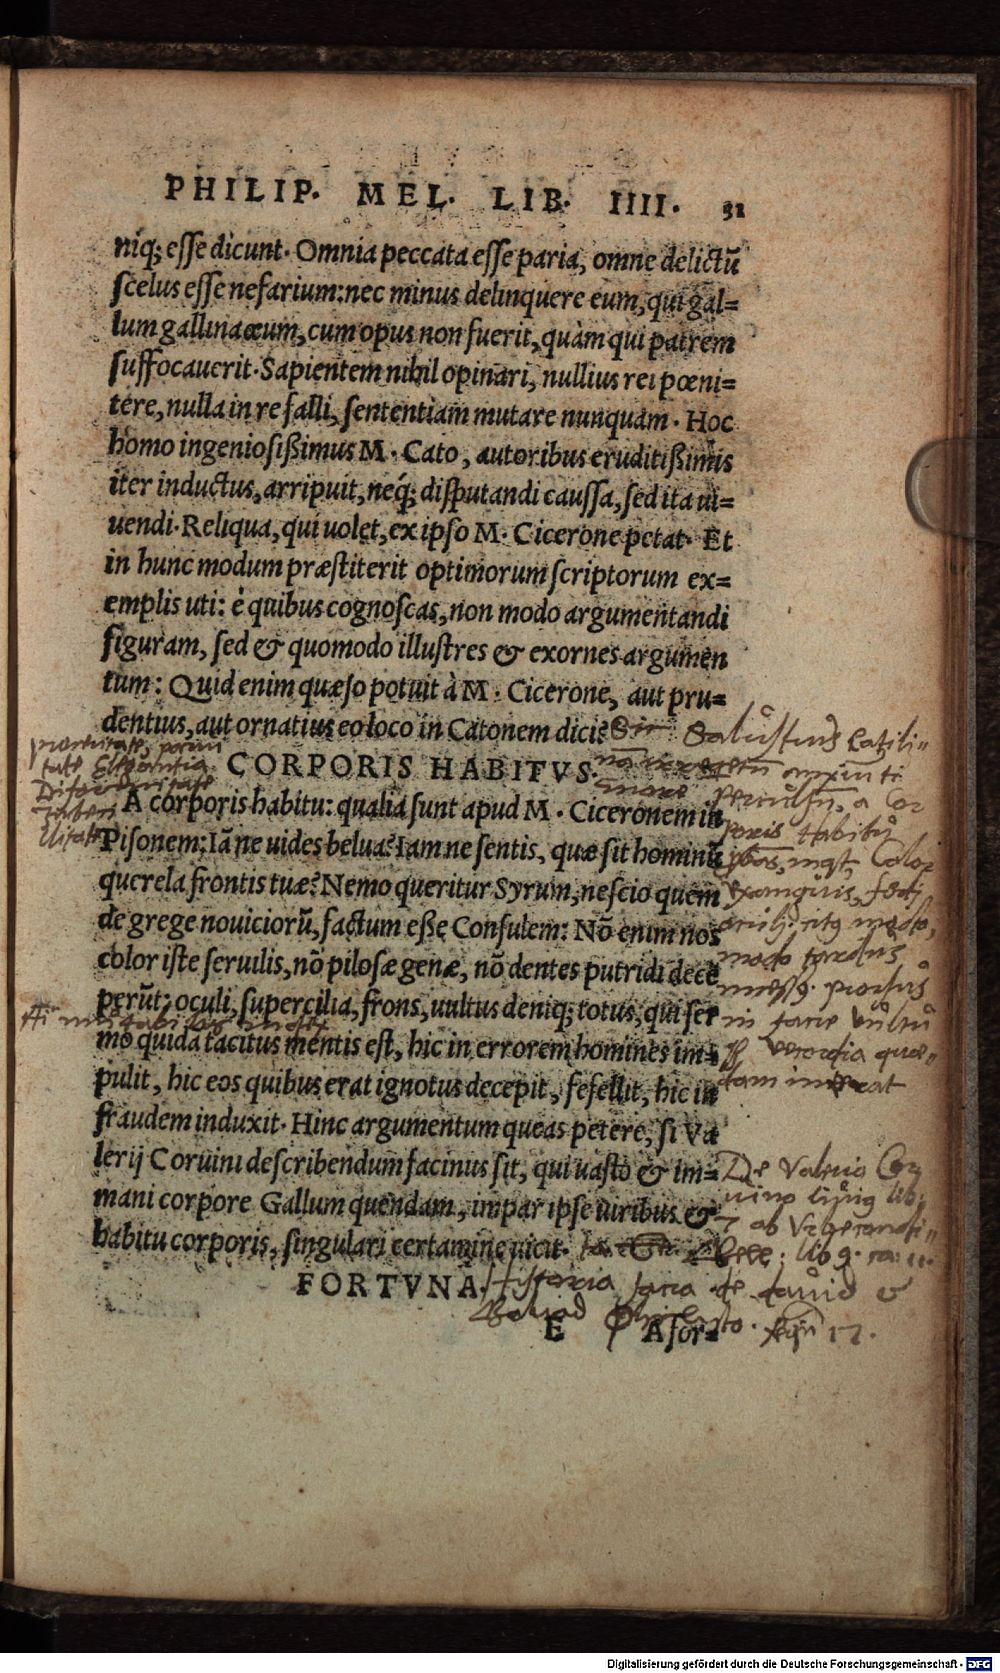 PHILIP. MEL. LIB. IIII. 31
niq; esse dicunt. Omnia peccata esse paria, omne delictũ
scelus esse nefarium: nec minus delinquere eum, qui gal=
lum gallinaceum, cum opus non fuerit, quàm qui patrem
suffocauerit. Sapientem nihil opinari, nullius rei pœni=
tere, nulla in re falli, sententiam mutare nunquam. Hoc
homo ingeniosißimus M. Cato, autoribus eruditißimis
iter inductus, arripuit, neq́; disputandi caussa, sed ita ui=
uendi. Reliqua, qui uolet, ex ipso M. Cicerone petat. Et
in hunc modum præstiterit optimorum scriptorum ex=
emplis uti: è quibus cognoscas, non modo argumentandi
figuram, sed & quomodo illustres & exornes argumen
tum: Quid enim quæso potuit à M. Cicerone, aut pru=
dentius, aut ornatius eo loco in Catonem dici?
Salustius Catili=
CORPORIS HABITVS.
A corporis habitu: qualia sunt apud M. Ciceronem in
a Cor
poris habitu
Pisonem: Iã ne uides belua? Iam ne sentis, quæ sit hominũ
Color
querela frontis tuæ? Nemo queritur Syrum, nescio quem
exanguis, fedi
de grege nouiciorũ, factum eße Consulem: Nõ enim nos
oculi citq modo,
color iste seruilis, nõ pilosæ genæ, nõ dentes putridi dece
modo tardus
perũt: oculi, supercilia, frons, uultus deniq; totus, qui ser
prorsus
in facie uultu
mo quidã tacitus mentis est, hic in errorem homines im=
uecordia quæ=
pulit, hic eos quibus erat ignotus decepit, fefellit, hic in
dam inerat
fraudem induxit. Hinc argumentum queas petere, si Va
lerij Coruini describendum facinus sit, qui uasto & im=
De Valerio Cor
mani corpore Gallum quendam, impar ipse uiribus &
uino lib:
habitu corporis, singulari certamine uicit.
lib 9. ca: 11.
FORTVNA.
Historia sacra de Dauid &
E A for=
17.
Digitalisierung gefördert durch die Deutsche Forschungsgemeinschaft - DFG